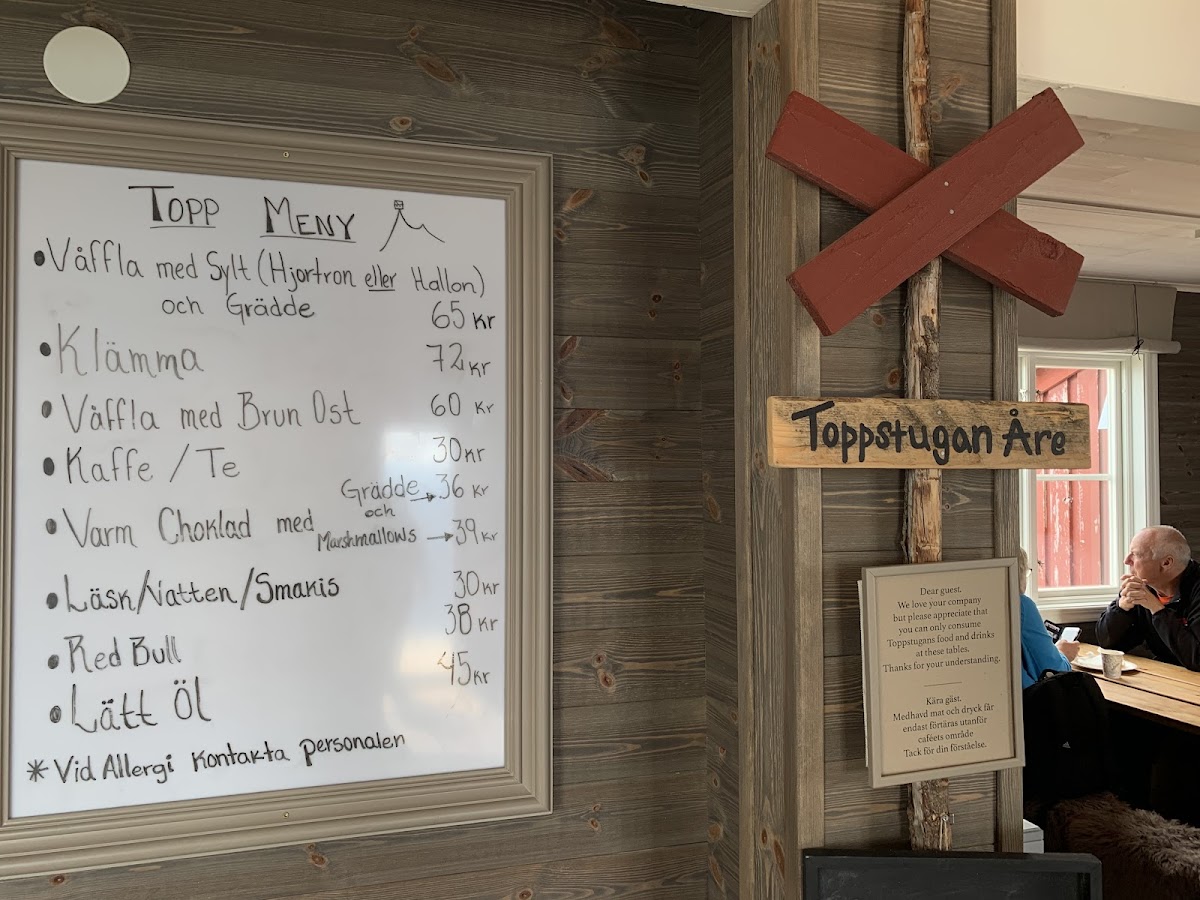 TOPP MENY
• Våffla med Sylt (Hjortron eller Hallon)
och Grädde 65 kr
• Klämma 72 kr
• Våffla med Brun Ost 60 kr
• Kaffe / Te 30 kr
• Varm Choklad med Grädde → 36 kr
och
Marshmallows → 39 kr
• Läsk/Vatten/Smakis 30 kr
• Red Bull 38 kr
• Lätt Öl 45 kr
* Vid Allergi kontakta personalen
Toppstugan Åre
Dear guest.
We love your company
but please appreciate that
you can only consume
Toppstugans food and drinks
at these tables.
Thanks for your understanding.
Kära gäst.
Medhavd mat och dryck får
endast förtäras utanför
caféets område
Tack för din förståelse.